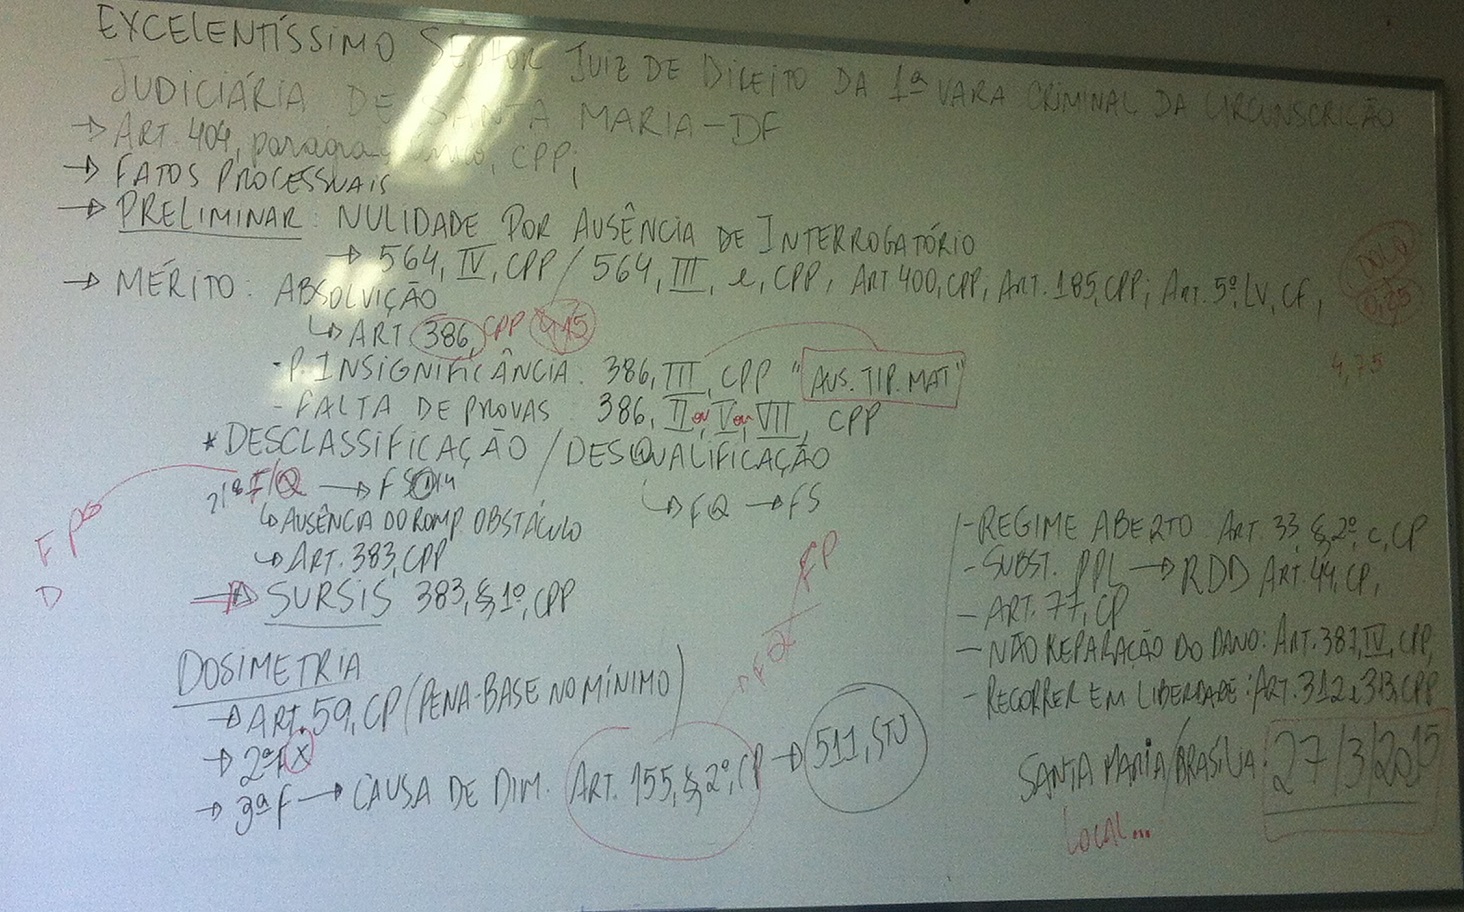 EXCELENTÍSSIMO SENHOR JUIZ DE DIREITO DA 1ª VARA CRIMINAL DA CIRCUNSCRIÇÃO
JUDICIÁRIA DE SANTA MARIA-DF
→ ART. 404, parágrafo único, CPP;
→ FATOS PROCESSUAIS
→ PRELIMINAR: NULIDADE POR AUSÊNCIA DE INTERROGATÓRIO
→ 564, IV, CPP / 564, III, e, CPP, ART 400, CPP; ART. 185, CPP; ART. 5º, LV, CF,
→ MÉRITO: ABSOLVIÇÃO
0,25
↳ ART 386, CPP
4,75
- P. INSIGNIFICÂNCIA: 386, III, CPP "AUS. TIP. MAT"
- FALTA DE PROVAS 386, II ou V ou VII, CPP
* DESCLASSIFICAÇÃO / DESQUALIFICAÇÃO
FQ → FS
↳ FQ → FS
↳ AUSÊNCIA DO ROMP. OBSTÁCULO
↳ ART. 383, CPP
F
D
FP
→ SURSIS 383, § 1º, CPP
DOSIMETRIA
→ ART. 59, CP (PENA-BASE NO MÍNIMO)
→ 2ª F X
→ 3ª F → CAUSA DE DIM. ART. 155, § 2º, CP → 511, STJ
FQ
- REGIME ABERTO ART. 33, § 2º, c, CP
- SUBST. PPL → RDD ART. 44, CP,
- ART. 77, CP
- NÃO REPARAÇÃO DO DANO: ART. 387, IV, CPP,
- RECORRER EM LIBERDADE: ART. 312 e 313, CPP
SANTA MARIA/BRASÍLIA: 27/3/2015
LOCAL...